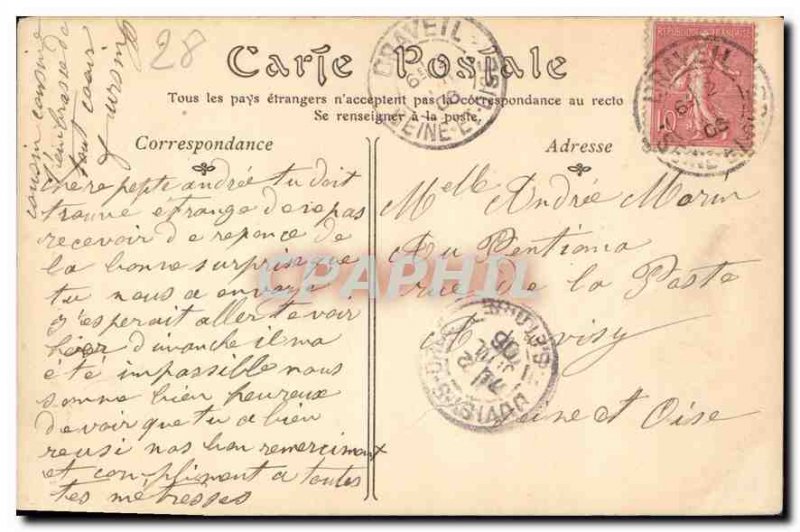 28
Carte Postale
Tous les pays étrangers n'acceptent pas la correspondance au recto
Se renseigner à la poste.
Correspondance
Adresse
chere pepte andrée tu doit
trouve étrange de ne pas
recevoir de reponce de
la bonne surprise que
tu nous a envoye
j'esperait aller te voir
hier dimanche il m'a
été impassible nous
somme bien heureux
de voir que tu a bien
reusi nos bon remerciment
et compliment a toutes
tes métresses
cousin cousine
t'embrasse de
tout cœur
Melle Andrée Morin
Au Pentiona
rue de la Poste
A visy
Seine et Oise
DRAVEIL
SEINE-ET-OISE
REPUBLIQUE FRANÇAISE
10
DRAVEIL
SEINE-ET-OISE
CPAPHIL